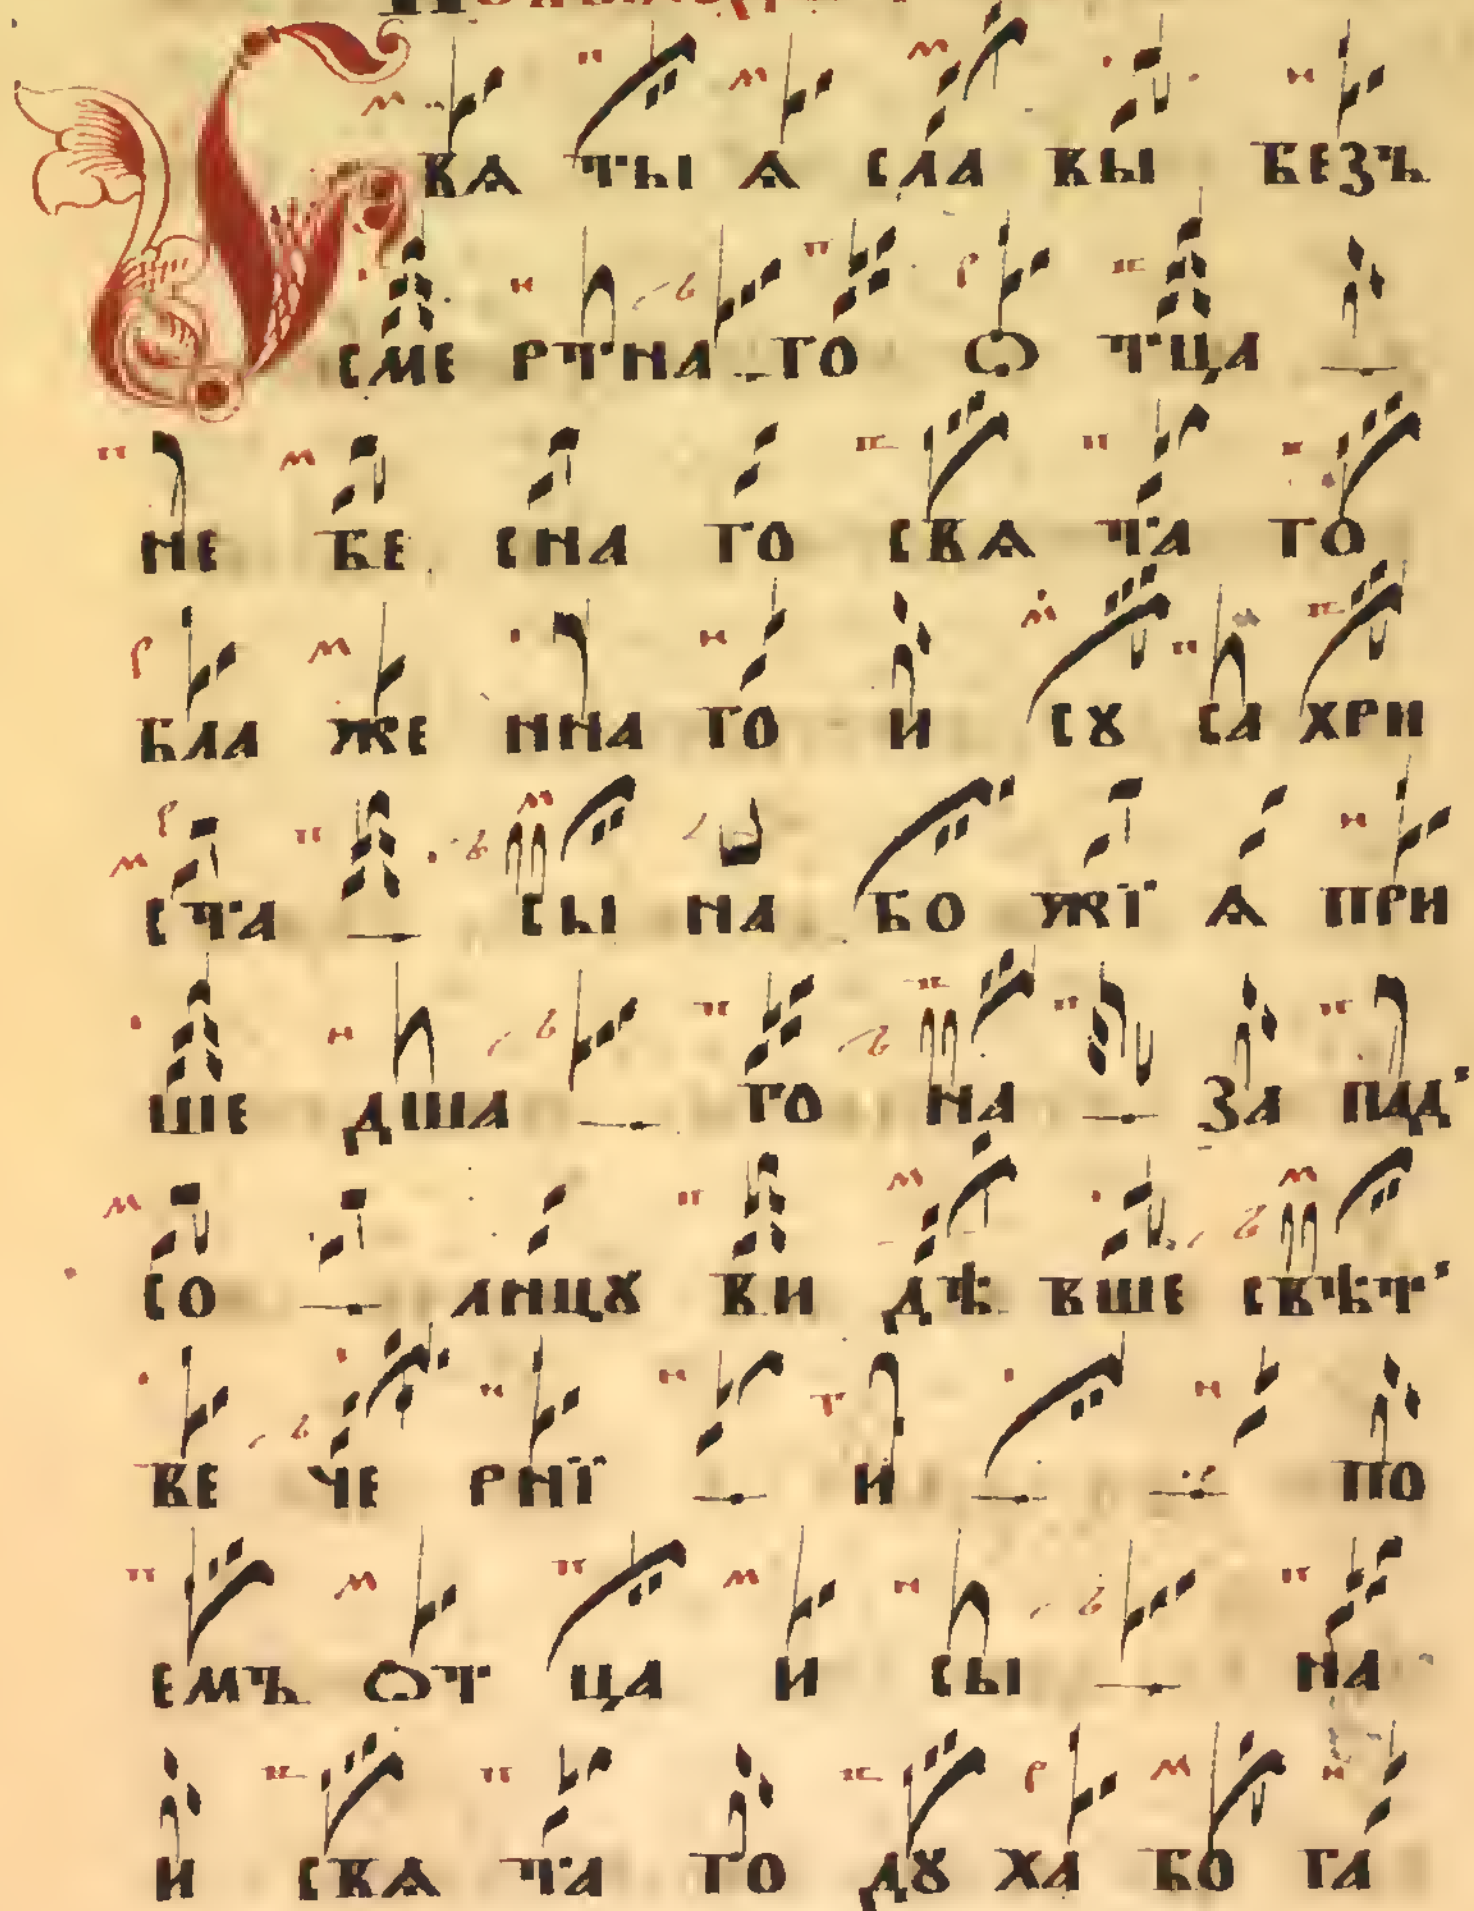 СВѦ ТЫ Ѧ СЛА ВЫ БЕЗЪ
СМЕ РТНА ГО Ѡ ТЦА
НЕ БЕ СНА ГО СВѦ ТА ГО
БЛА ЖЕ ННА ГО И СꙊ СА ХРИ
СТА СЫ НА БО ЖЇ Ѧ ПРИ
ШЕ ДША ГО НА ЗА ПАД
СО ЛНЦꙊ ВИ ДѢ ВШЕ СВѢТ
ВЕ ЧЕ РНЇ И ПО
ЕМЪ ѠТ ЦА И СЫ НА
И СВѦ ТА ГО ДꙊ ХА БО ГА